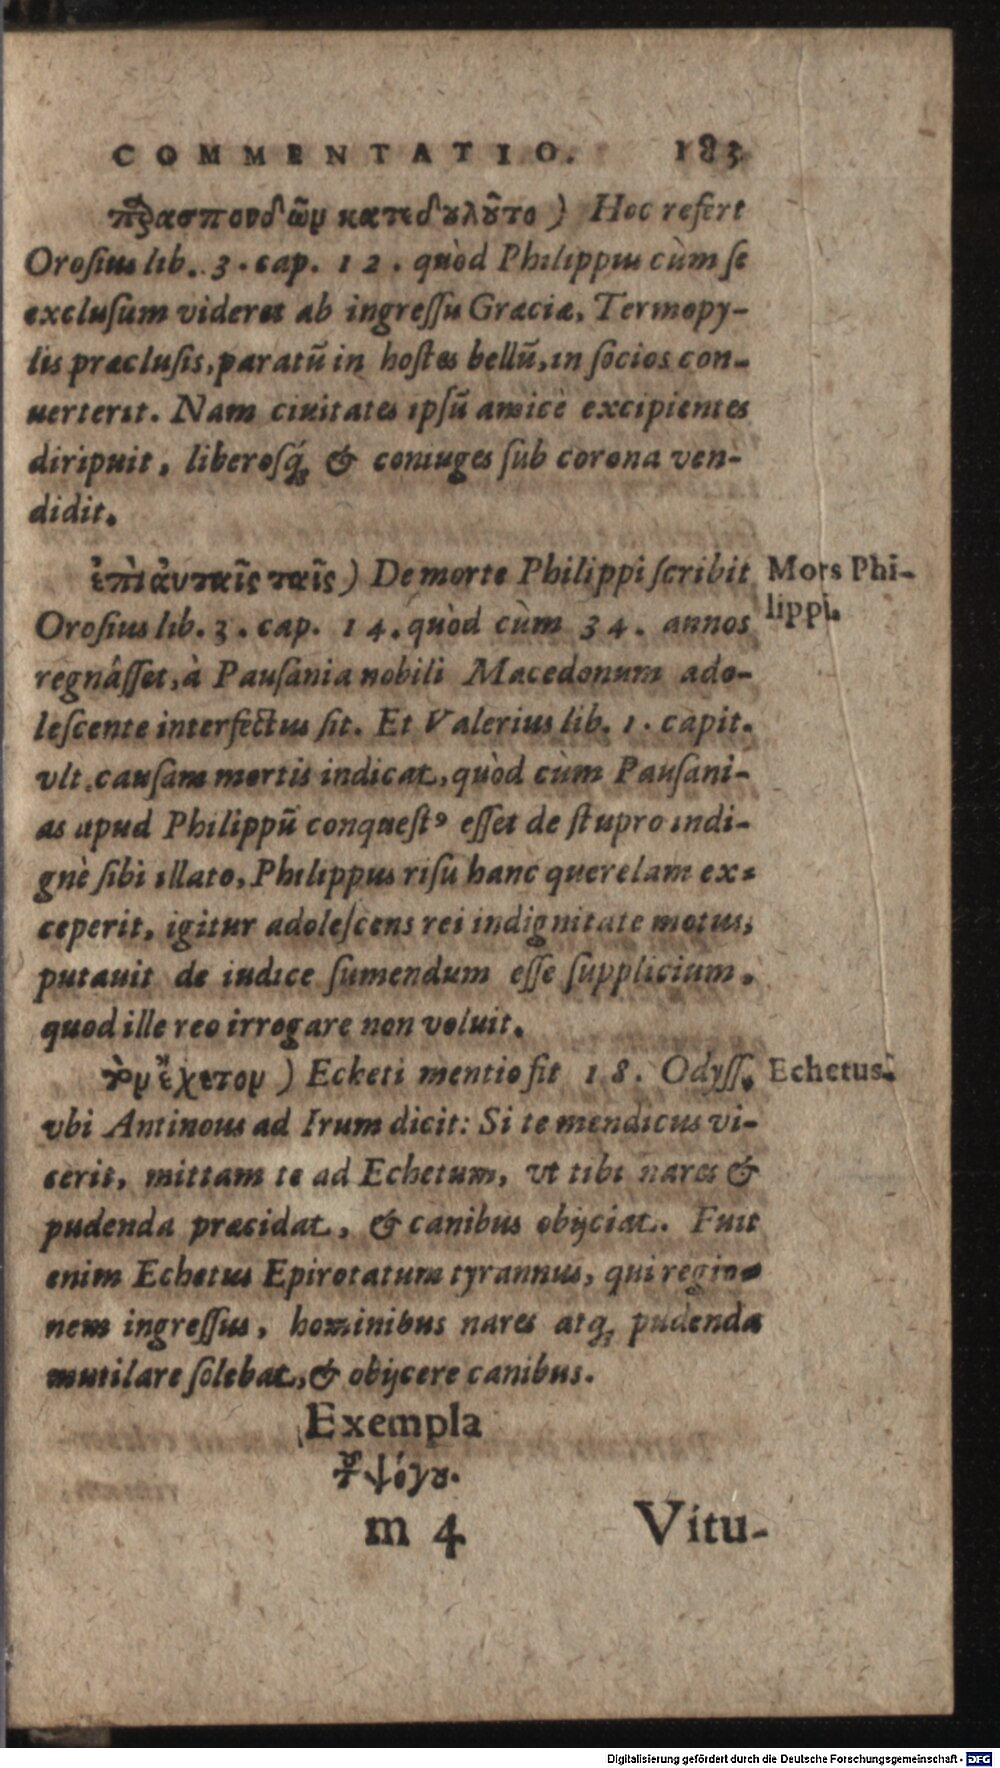 COMMENTATIO. 183
παρασπονδῶν κατεδȣλȣ͂το) Hoc refert
Orosius lib. 3. cap. 12. quòd Philippus cùm se
exclusum videret ab ingressu Græciæ, Termopy-
lis præclusis, paratū in hostes bellū, in socios con-
uerterit. Nam ciuitates ipsū amicè excipientes
diripuit, liberosq́; & coniuges sub corona ven-
didit.
ἐπὶ ἀυταῖς ταῖς) De morte Philippi scribit
Mors Phi-
lippi.
Orosius lib. 3. cap. 14. quòd cùm 34. annos
regnâsset, à Pausania nobili Macedonum ado-
lescente interfectus sit. Et Valerius lib. 1. capit.
vlt. causam mortis indicat, quòd cùm Pausani-
as apud Philippū conquestꝰ esset de stupro indi-
gnè sibi illato, Philippus risu hanc querelam ex-
ceperit, igitur adolescens rei indignitate motus,
putauit de iudice sumendum esse supplicium,
quod ille reo irrogare non voluit.
τὸν ἔχετον) Echeti mentio fit 18. Odyss.
Echetus.
vbi Antinous ad Irum dicit: Si te mendicus vi-
cerit, mittam te ad Echetum, vt tibi nares &
pudenda præcidat, & canibus obijciat. Fuit
enim Echetus Epirotatum tyrannus, qui regio-
nem ingressus, hominibus nares atq; pudenda
mutilare solebat, & obijcere canibus.
Exempla
τȣ͂ ψόγȣ.
m 4 Vitu-
Digitalisierung gefördert durch die Deutsche Forschungsgemeinschaft - DFG